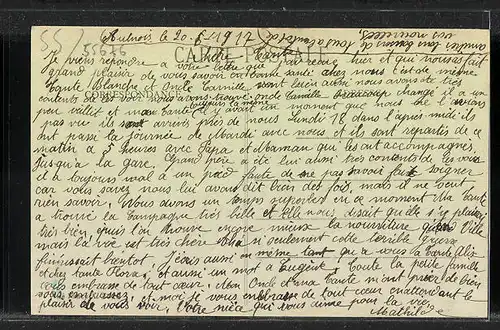 amities
vos nouvelles
Aulnois le 20.6.1917
55676
CARTE POSTALE
Chère Tante
Je viens répondre a votre lettre que j'ai reçue hier et qui nous a fait
grand plaisir de vous savoir en bonne santé chez nous c'est de même
Tante Blanche et Oncle Camille sont bien aussi nous avons été très
contents de les voir nous avons trouvé Oncle Camille beaucoup changé il a un
peu vieilli et ma Tante est toujours la même il y avait un moment que nous ne l'avions
pas vue ils sont arrivés près de nous Lundi 18 dans l'après midi ils
ont passé la journée de Mardi avec nous et ils sont repartis de ce
matin a 5 heures avec Papa et Maman qui les ont accompagnés
jusqu'a la gare. Grand père a été lui aussi très contents de les voir
il a toujours mal a un pied faute de ne pas savoir se soigner
car vous savez nous lui avons dit bien des fois, mais il ne veut
rien savoir. Nous avons un temps superbe en ce moment Ma Tante
a trouvé la campagne très belle et elle nous disait qu'elle s'y plairait
très bien, puis l'on trouve encore mieux la nourriture qu'en Ville
mais la vie est très chère si seulement cette terrible guerre
finissait bientôt. J'écris aussi en même temps qu'a vous la tante Alis
et chez tante Flora, et aussi un mot a Eugène. Toute la petite famille
vous embrasse de tout cœur. Mon Oncle et ma Tante m'ont prié de bien
vous embrasser, et moi je vous embrasse de tout cœur en attendant le
plaisir de vous voir. Votre nièce qui vous aime pour la vie.
Mathilde